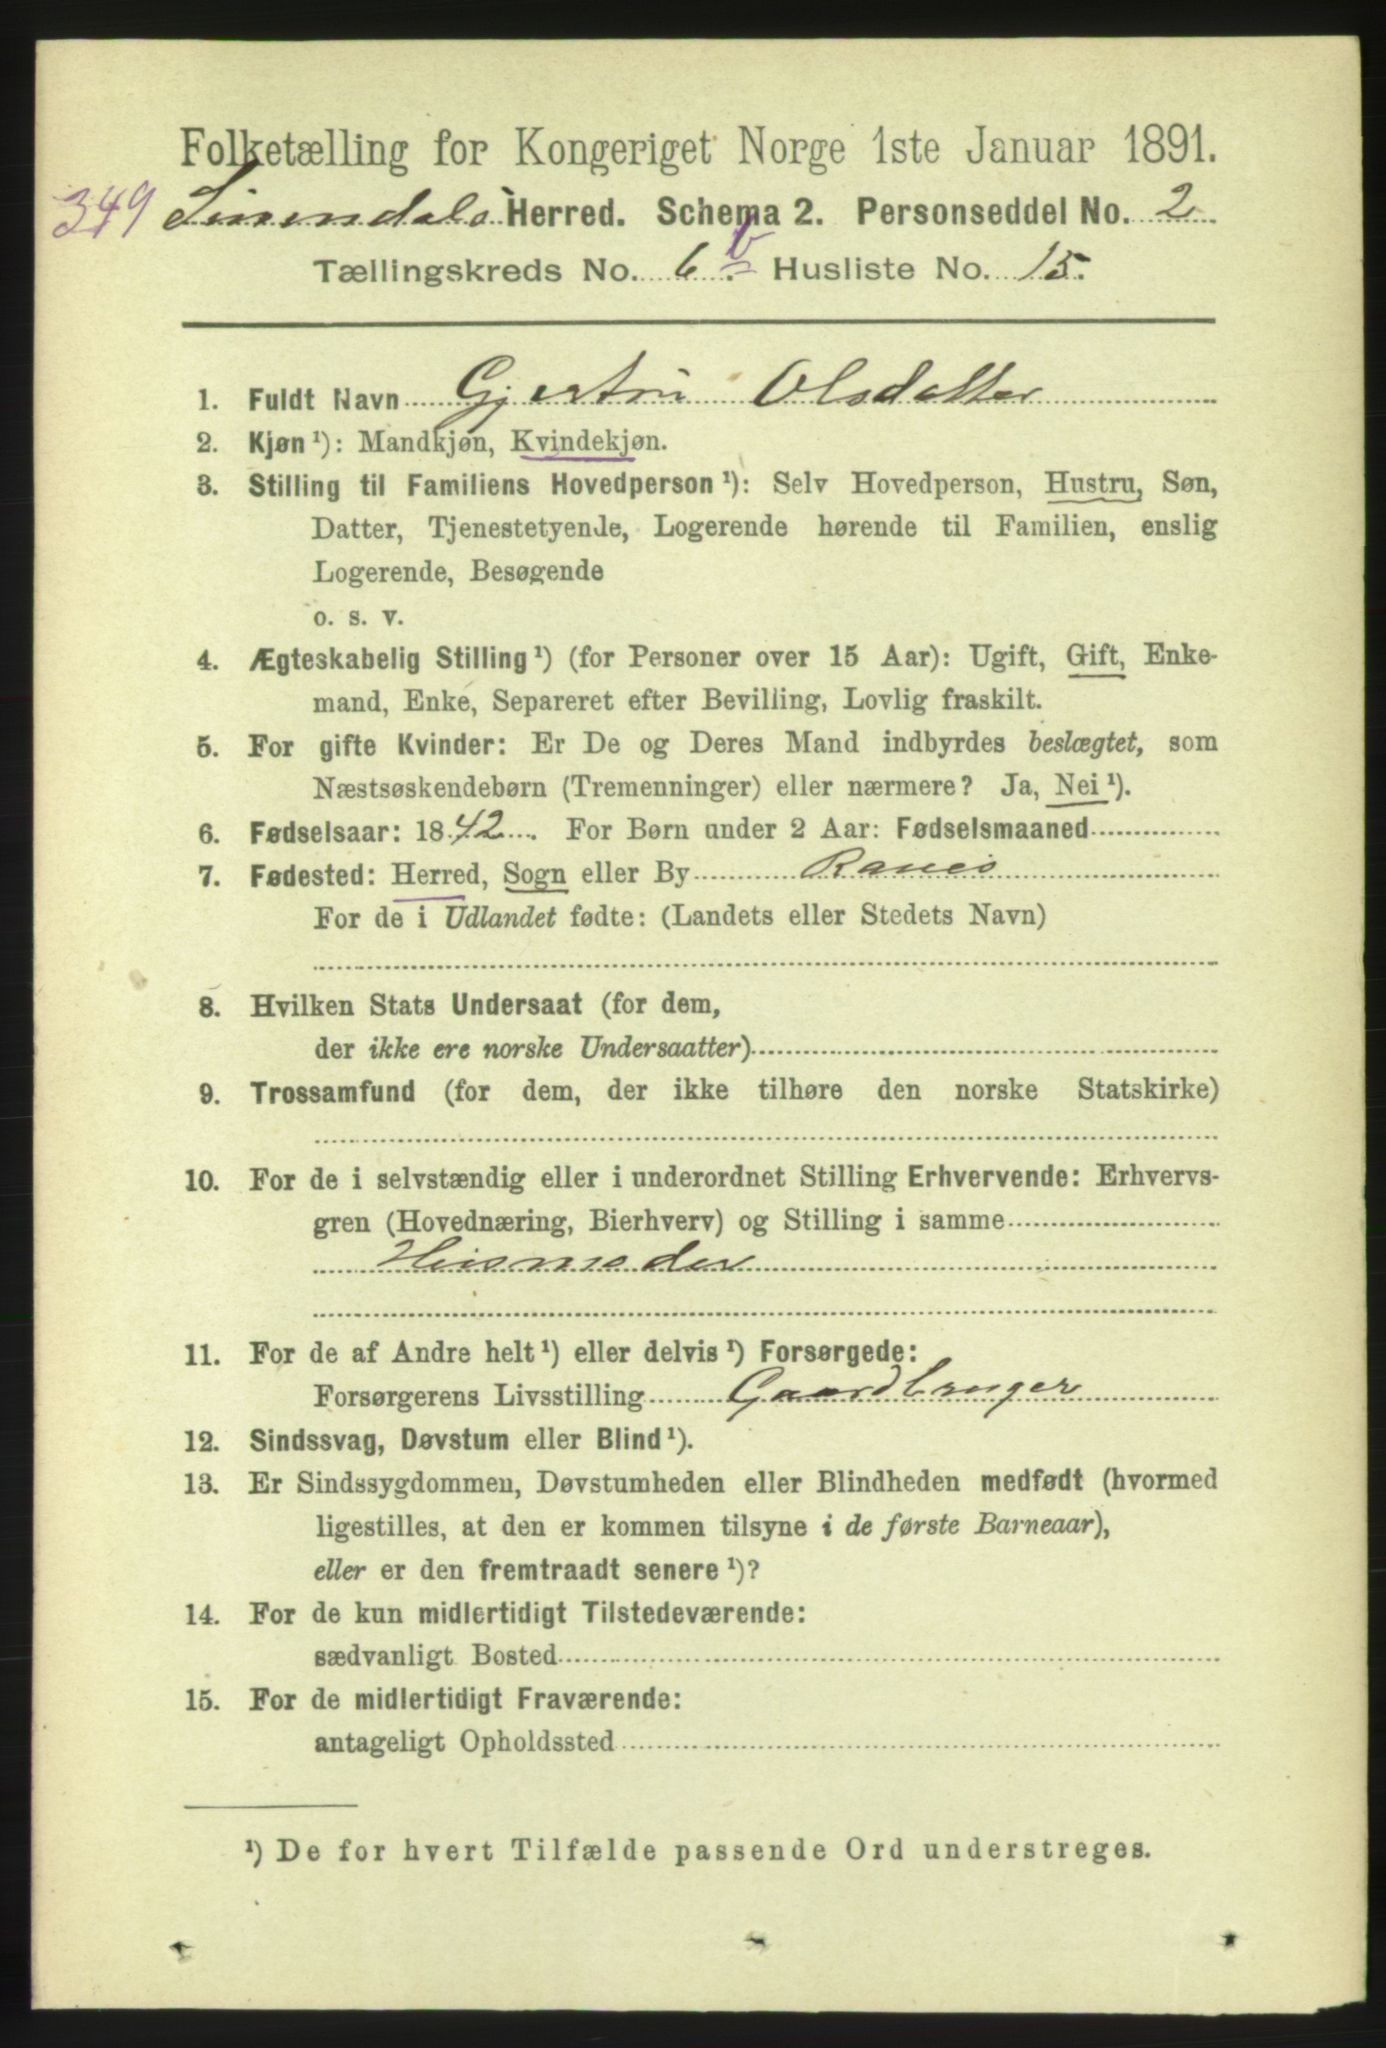 Folketælling for Kongeriget Norge 1ste Januar 1891.
349 Surendals Herred. Schema 2. Personseddel No. 2
Tællingskreds No. 6 b. Husliste No. 15.
1. Fuldt Navn Gjertru Olsdatter
2. Kjøn ¹): Mandkjøn, Kvindekjøn.
3. Stilling til Familiens Hovedperson ¹): Selv Hovedperson, Hustru, Søn,
Datter, Tjenestetyende, Logerende hørende til Familien, enslig
Logerende, Besøgende
o. s. v.
4. Ægteskabelig Stilling ¹) (for Personer over 15 Aar): Ugift, Gift, Enke-
mand, Enke, Separeret efter Bevilling, Lovlig fraskilt.
5. For gifte Kvinder: Er De og Deres Mand indbyrdes beslægtet, som
Næstsøskendebørn (Tremenninger) eller nærmere? Ja, Nei ¹).
6. Fødselsaar: 1842. For Børn under 2 Aar: Fødselsmaaned
7. Fødested: Herred, Sogn eller By Ranes
For de i Udlandet fødte: (Landets eller Stedets Navn)
8. Hvilken Stats Undersaat (for dem,
der ikke ere norske Undersaatter)
9. Trossamfund (for dem, der ikke tilhøre den norske Statskirke)
10. For de i selvstændig eller i underordnet Stilling Erhvervende: Erhvervs-
gren (Hovednæring, Bierhverv) og Stilling i samme
Husmoder
11. For de af Andre helt ¹) eller delvis ¹) Forsørgede:
Forsørgerens Livsstilling Gaardbruger
12. Sindssvag, Døvstum eller Blind ¹).
13. Er Sindssygdommen, Døvstumheden eller Blindheden medfødt (hvormed
ligestilles, at den er kommen tilsyne i de første Barneaar),
eller er den fremtraadt senere ¹)?
14. For de kun midlertidigt Tilstedeværende:
sædvanligt Bosted
15. For de midlertidigt Fraværende:
antageligt Opholdssted
¹) De for hvert Tilfælde passende Ord understreges.